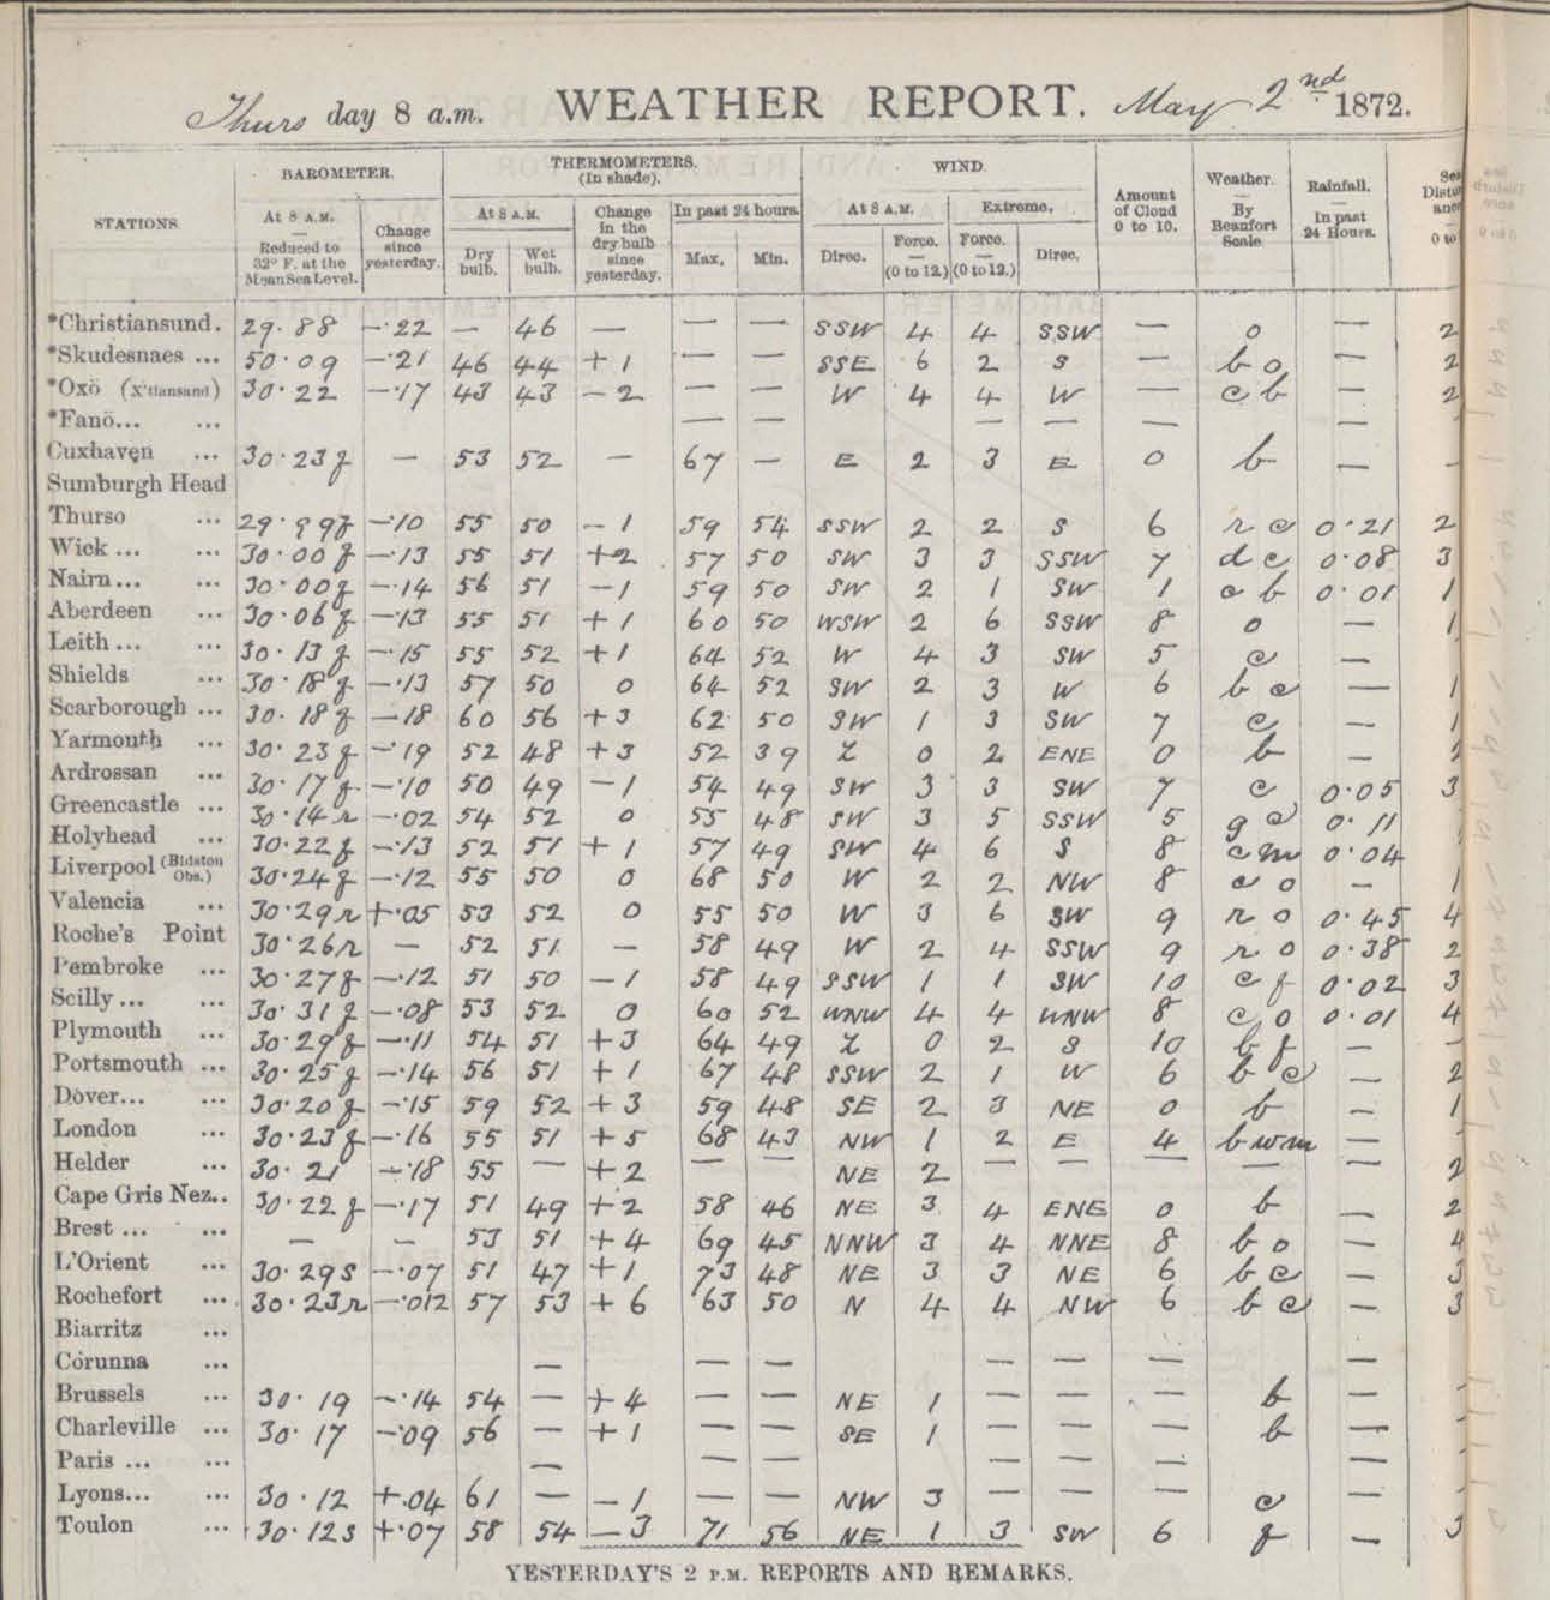 Thurs day 8 a.m. WEATHER REPORT. May 2nd 1872.
STATIONS BAROMETER. THERMOMETERS. (In shade). WIND. Amount of Cloud 0 to 10. Weather. By Beaufort Scale Rainfall. In past 24 Hours.
At 8 A.M. Reduced to 32° F. at the Mean Sea Level. Change since yesterday. At 8 A.M. Dry bulb. Wet bulb. Change in the dry bulb since yesterday. In past 24 hours. Max. Min. At 8 A.M. Direc. Force. (0 to 12.) Extreme. Force. (0 to 12.) Direc.
*Christiansund. 29.88 -.22 — 46 — — — SSW 4 4 SSW — o — 2
*Skudesnaes ... 50.09 -.21 46 44 +1 — — SSE 6 2 S — b o — 2
*Oxö (X'tiansand) 30.22 -.17 43 43 -2 — — W 4 4 W — c b — 2
*Fanö... ... — — — — — —
Cuxhaven ... 30.23 f — 53 52 — 67 — E 2 3 E 0 b — -
Sumburgh Head
Thurso ... 29.99f -.10 55 50 -1 59 54 SSW 2 2 S 6 r c 0.21 2
Wick ... ... 30.00 f -.13 55 51 +2 57 50 SW 3 3 SSW 7 d c 0.08 3
Nairn ... ... 30.00f -.14 56 51 -1 59 50 SW 2 1 SW 1 c b 0.01 1
Aberdeen ... 30.06 f -.13 55 51 +1 60 50 WSW 2 6 SSW 8 o — 1
Leith ... ... 30.13 f -.15 55 52 +1 64 52 W 4 3 SW 5 c —
Shields ... 30.18 f -.13 57 50 0 64 52 SW 2 3 W 6 b c — 1
Scarborough ... 30.18 f -18 60 56 +3 62 50 SW 1 3 SW 7 c — 1
Yarmouth ... 30.23 f -.19 52 48 +3 52 39 Z 0 2 ENE 0 b — 2
Ardrossan ... 30.17 f -.10 50 49 -1 54 49 SW 3 3 SW 7 c 0.05 3
Greencastle ... 30.14 r -.02 54 52 0 55 48 SW 3 5 SSW 5 g c 0.11
Holyhead ... 30.22 f -.13 52 51 +1 57 49 SW 4 6 S 8 c m 0.04
Liverpool (Bidston Obs.) 30.24 f -.12 55 50 0 68 50 W 2 2 NW 8 c o — 1
Valencia ... 30.29 r +.05 53 52 0 55 50 W 3 6 SW 9 r o 0.45 4
Roche's Point 30.26 r — 52 51 — 58 49 W 2 4 SSW 9 r o 0.38 2
Pembroke ... 30.27 f -.12 51 50 -1 58 49 SSW 1 1 SW 10 c f 0.02 3
Scilly ... ... 30.31 f -.08 53 52 0 60 52 WNW 4 4 WNW 8 c o 0.01 4
Plymouth ... 30.29 f -.11 54 51 +3 64 49 Z 0 2 S 10 b f — -
Portsmouth ... 30.25 f -.14 56 51 +1 67 48 SSW 2 1 W 6 b c — 2
Dover... ... 30.20 f -.15 59 52 +3 59 48 SE 2 3 NE 0 b — 1
London ... 30.23 f -.16 55 51 +5 68 43 NW 1 2 E 4 b w m — -
Helder ... 30.21 -.18 55 — +2 — — NE 2 — — — — — 2
Cape Gris Nez.. 30.22 f -.17 51 49 +2 58 46 NE 3 4 ENE 0 b — 2
Brest ... ... — — 53 51 +4 69 45 NNW 3 4 NNE 8 b o — 4
L'Orient ... 30.29 s -.07 51 47 +1 73 48 NE 3 3 NE 6 b c — 3
Rochefort ... 30.23 r -.012 57 53 +6 63 50 N 4 4 NW 6 b c — 3
Biarritz ...
Corunna ... — — — — — — —
Brussels ... 30.19 -.14 54 — +4 — — NE 1 — — — b — -
Charleville ... 30.17 -.09 56 — +1 — — SE 1 — — — b — -
Paris ... ... — — — — — — — -
Lyons... ... 30.12 +.04 61 — -1 — — NW 3 — — — c — -
Toulon ... 30.12 s +.07 58 54 -3 71 56 NE 1 3 SW 6 f — 3
YESTERDAY'S 2 P.M. REPORTS AND REMARKS.